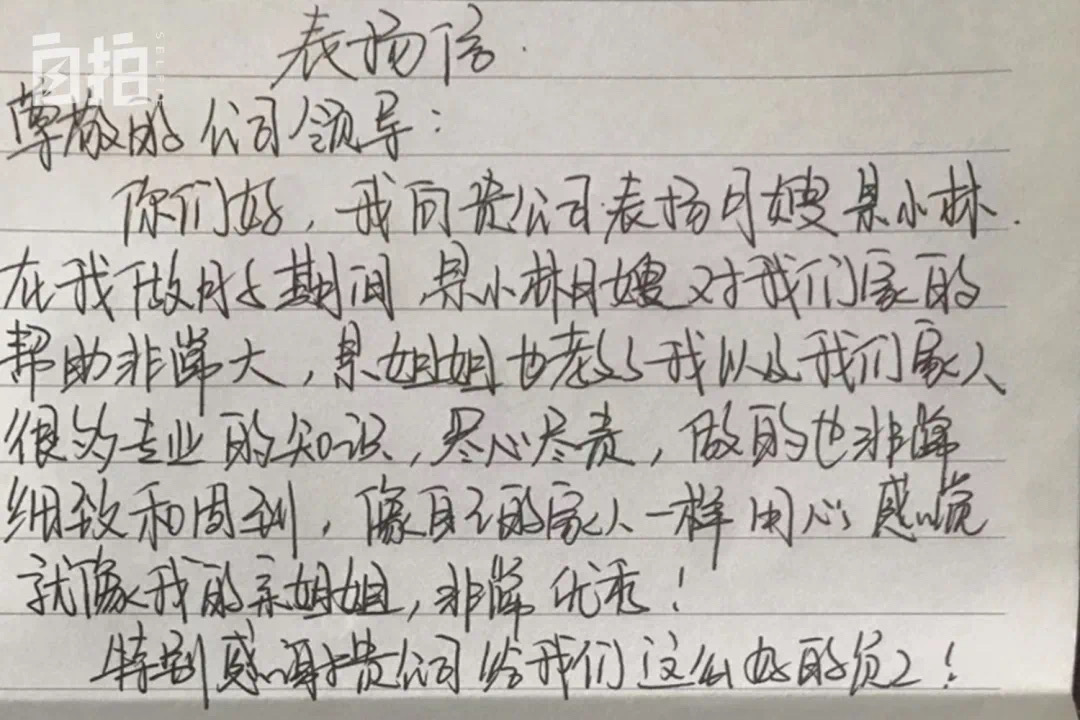 自拍
SELFIE
表扬信
尊敬的公司领导：
你们好，我向贵公司表扬月嫂吴小林.
在我做月子期间吴小林月嫂对我们家的
帮助非常大，吴姐姐也教了我以及我们家人
很多专业的知识，尽心尽责，做的也非常
细致和周到，像自己的家人一样用心感觉
就像我的亲姐姐，非常优秀！
特别感谢贵公司给我们这么好的员工！